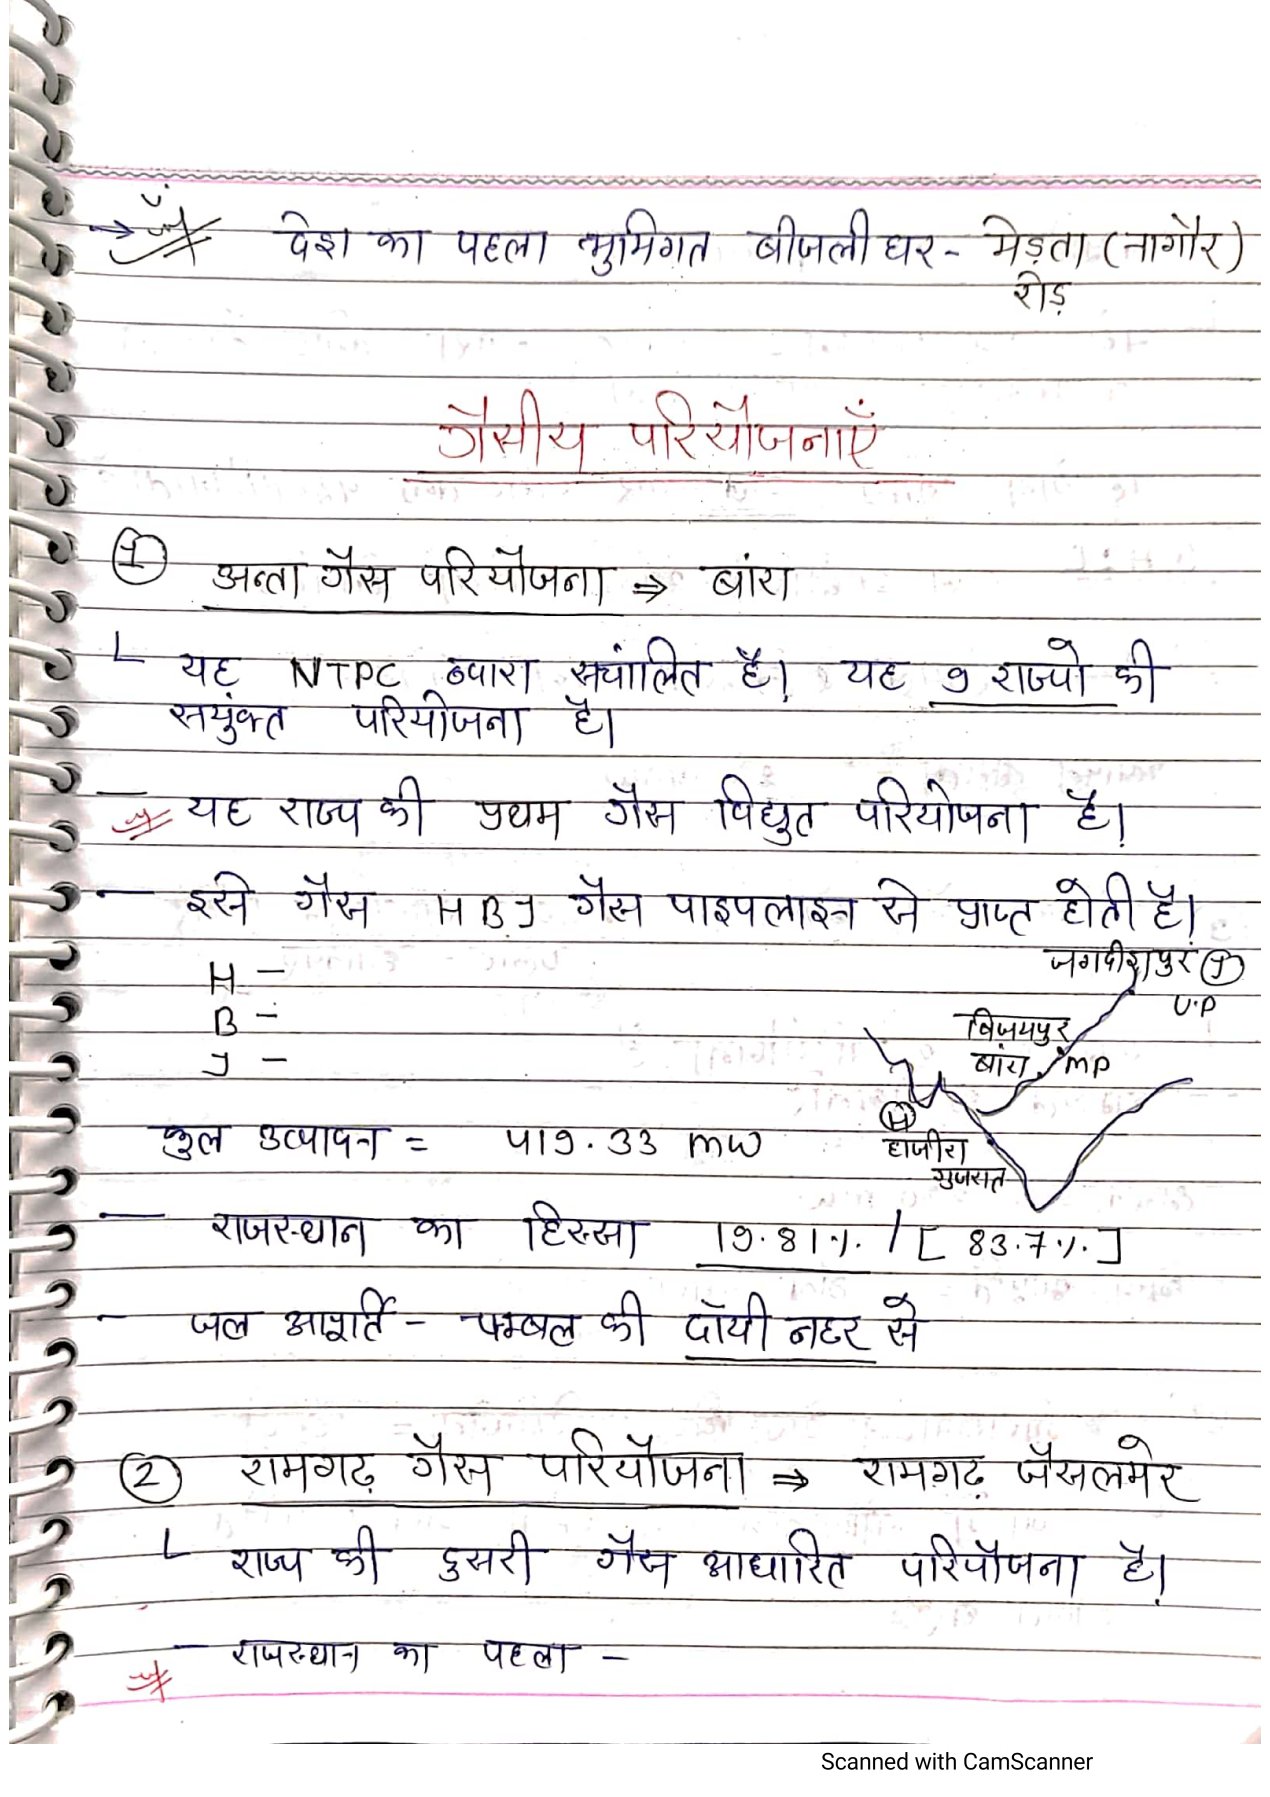 देश का पहला भुमिगत बीजली घर - मेड़ता (नागौर)
रोड़
गैसीय परियोजनाएँ
1 अन्ता गैस परियोजना ⇒ बांरा
यह NTPC द्वारा सचांलित है। यह 9 राज्यो की
सयुंक्त परियोजना है।
यह राज्य की प्रथम गैस विद्युत परियोजना है।
- इसे गैस HBJ गैस पाइपलाइन से प्राप्त होती है।
जगदीशपुर J
U.P
H -
B -
J -
विजयपुर
बांरा MP
H
हाजीरा
गुजरात
कुल उत्पादन = 419.33 MW
- राजस्थान का हिस्सा 19.81% / [ 83.7%. ]
- जल आपूर्ति - चम्बल की दाँयी नहर से
2 रामगढ़ गैस परियोजना ⇒ रामगढ़ जैसलमेर
राज्य की दुसरी गैस आधारित परियोजना है।
- राजस्थान का पहला -
Scanned with CamScanner